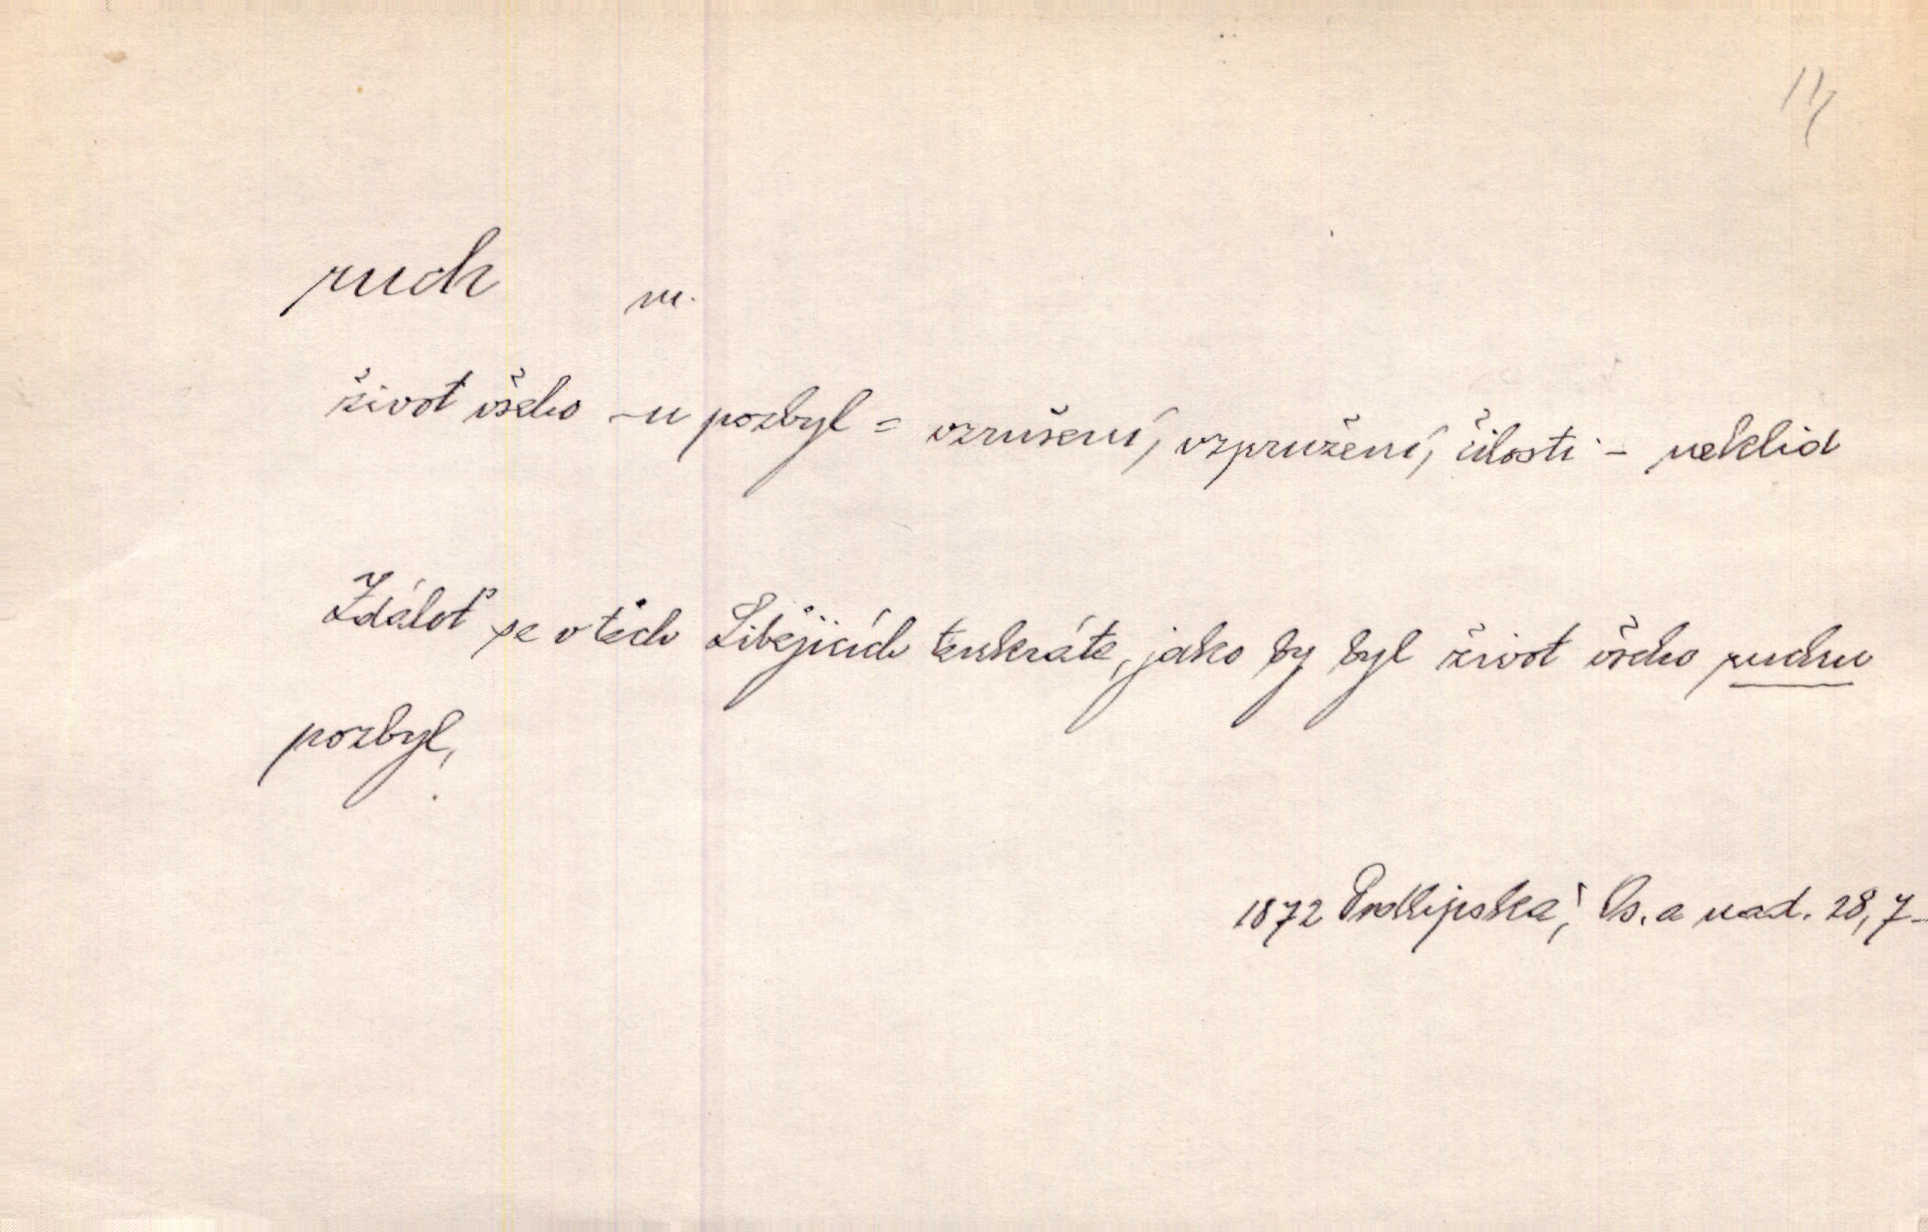 11
ruch m.
život všeho -u pozbyl = vzrušení, vzpružení, čilosti - neklid
Zdáloť se v těch Libějicích tenkráte, jako by byl život všeho ruchu
pozbyl,
1872 Podlipská, Os. a nad. 28, 7-